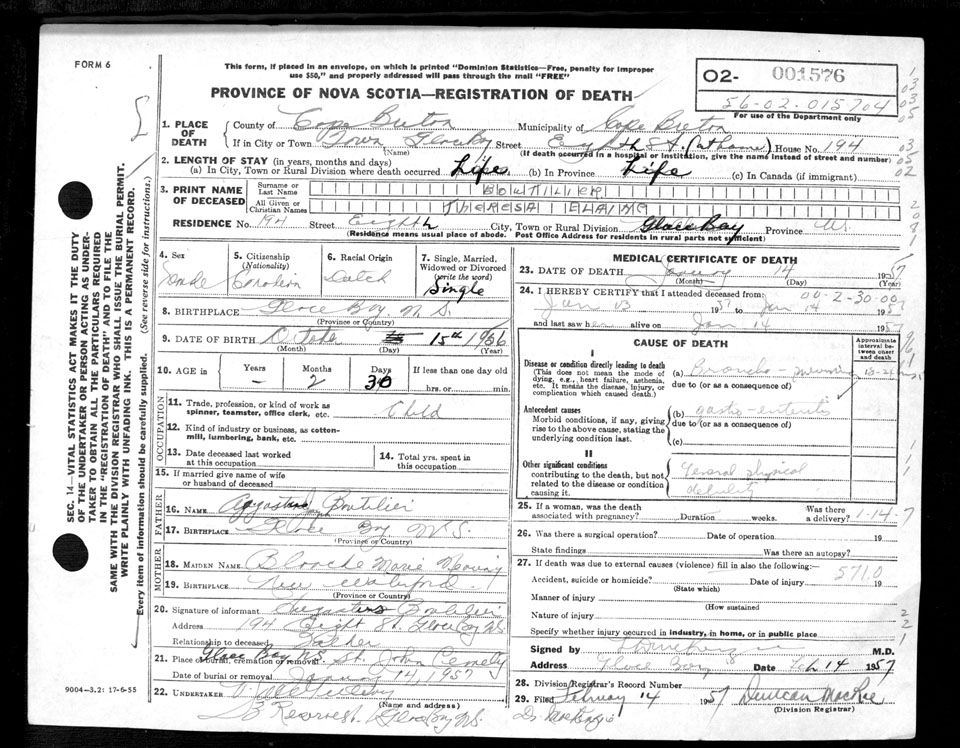 FORM 6
This form, if placed in an envelope, on which is printed "Dominion Statistics—Free, penalty for improper
use $50," and properly addressed will pass through the mail "FREE"
PROVINCE OF NOVA SCOTIA—REGISTRATION OF DEATH
O2- 001576
56-02-015704
For use of the Department only
1. PLACE OF DEATH
County of Cape Breton Municipality of Cape Breton
If in City or Town Town Glace Bay Street Eighth St. (at home) House No. 194
(Name) (If death occurred in a hospital or institution, give the name instead of street and number)
2. LENGTH OF STAY (in years, months and days)
(a) In City, Town or Rural Division where death occurred Life. (b) In Province Life (c) In Canada (if immigrant)
3. PRINT NAME OF DECEASED
Surname or Last Name BOUTILIER
All Given or Christian Names THERESA ELAINE
RESIDENCE No. 194 Street Eighth City, Town or Rural Division Glace Bay Province N.S.
(Residence means usual place of abode. Post Office Address for residents in rural parts not sufficient)
4. Sex
5. Citizenship (Nationality) Canadian
6. Racial Origin Dutch
7. Single, Married, Widowed or Divorced (write the word) Single
8. BIRTHPLACE Glace Bay N.S.
(Province or Country)
9. DATE OF BIRTH October 15th 1956
(Month) (Day) (Year)
10. AGE in Years – Months 2 Days 30 If less than one day old
hrs. or min.
OCCUPATION
11. Trade, profession, or kind of work as
spinner, teamster, office clerk, etc. Child
12. Kind of industry or business, as cotton-
mill, lumbering, bank, etc.
13. Date deceased last worked
at this occupation
14. Total yrs. spent in
this occupation
15. If married give name of wife
or husband of deceased
FATHER
16. NAME Boutilier
17. BIRTHPLACE Glace Bay N.S.
(Province or Country)
MOTHER
18. MAIDEN NAME Blanche Marie
19. BIRTHPLACE New Waterford
(Province or Country)
20. Signature of informant Augustine Boutilier
Address 194 Eight St. Glace Bay N.S.
Relationship to deceased Father
Glace Bay N.S.
21. Place of burial, cremation or removal St. John Cemetery
Date of burial or removal January 14, 1957
22. UNDERTAKER
(Name and address)
Reserve St Glace Bay N.S.
9004-3.2: 17-6-55
MEDICAL CERTIFICATE OF DEATH
23. DATE OF DEATH January 14 1957
(Month) (Day)
24. I HEREBY CERTIFY that I attended deceased from 00-2-30-00
Jan 13 1957 to Jan 14 1957
and last saw her alive on Jan 14 1957
CAUSE OF DEATH
Approximate interval between onset and death
I
Disease or condition directly leading to death
(This does not mean the mode of
dying, e.g., heart failure, asthenia,
etc. It means the disease, injury, or
complication which caused death.)
(a) Broncho-pneumonia
due to (or as a consequence of)
Antecedent causes
Morbid conditions, if any, giving
rise to the above cause, stating the
underlying condition last.
(b) gastro-enteritis
due to (or as a consequence of)
(c)
II
Other significant conditions
contributing to the death, but not
related to the disease or condition
causing it.
General physical
debility
25. If a woman, was the death
associated with pregnancy? Duration weeks. Was there a delivery? 1-14-7
26. Was there a surgical operation? Date of operation 19
State findings Was there an autopsy?
27. If death was due to external causes (violence) fill in also the following:
571.0
Accident, suicide or homicide? Date of injury 19
(State which)
Manner of injury
(How sustained
Nature of injury
Specify whether injury occurred in industry, in home, or in public place
Signed by M.D.
Address Glace Bay Date Feb 14 1957
28. Division Registrar's Record Number
29. Filed February 14 1957 Duncan MacRae
(Division Registrar)
Dr. MacKenzie
SEC. 14—VITAL STATISTICS ACT MAKES IT THE DUTY
OF THE UNDERTAKER OR PERSON ACTING AS UNDER-
TAKER TO OBTAIN ALL THE PARTICULARS REQUIRED
IN THE "REGISTRATION OF DEATH" AND TO FILE THE
SAME WITH THE DIVISION REGISTRAR WHO SHALL ISSUE THE BURIAL PERMIT.
WRITE PLAINLY WITH UNFADING INK. THIS IS A PERMANENT RECORD.
Every item of information should be carefully supplied. (See reverse side for instructions.)